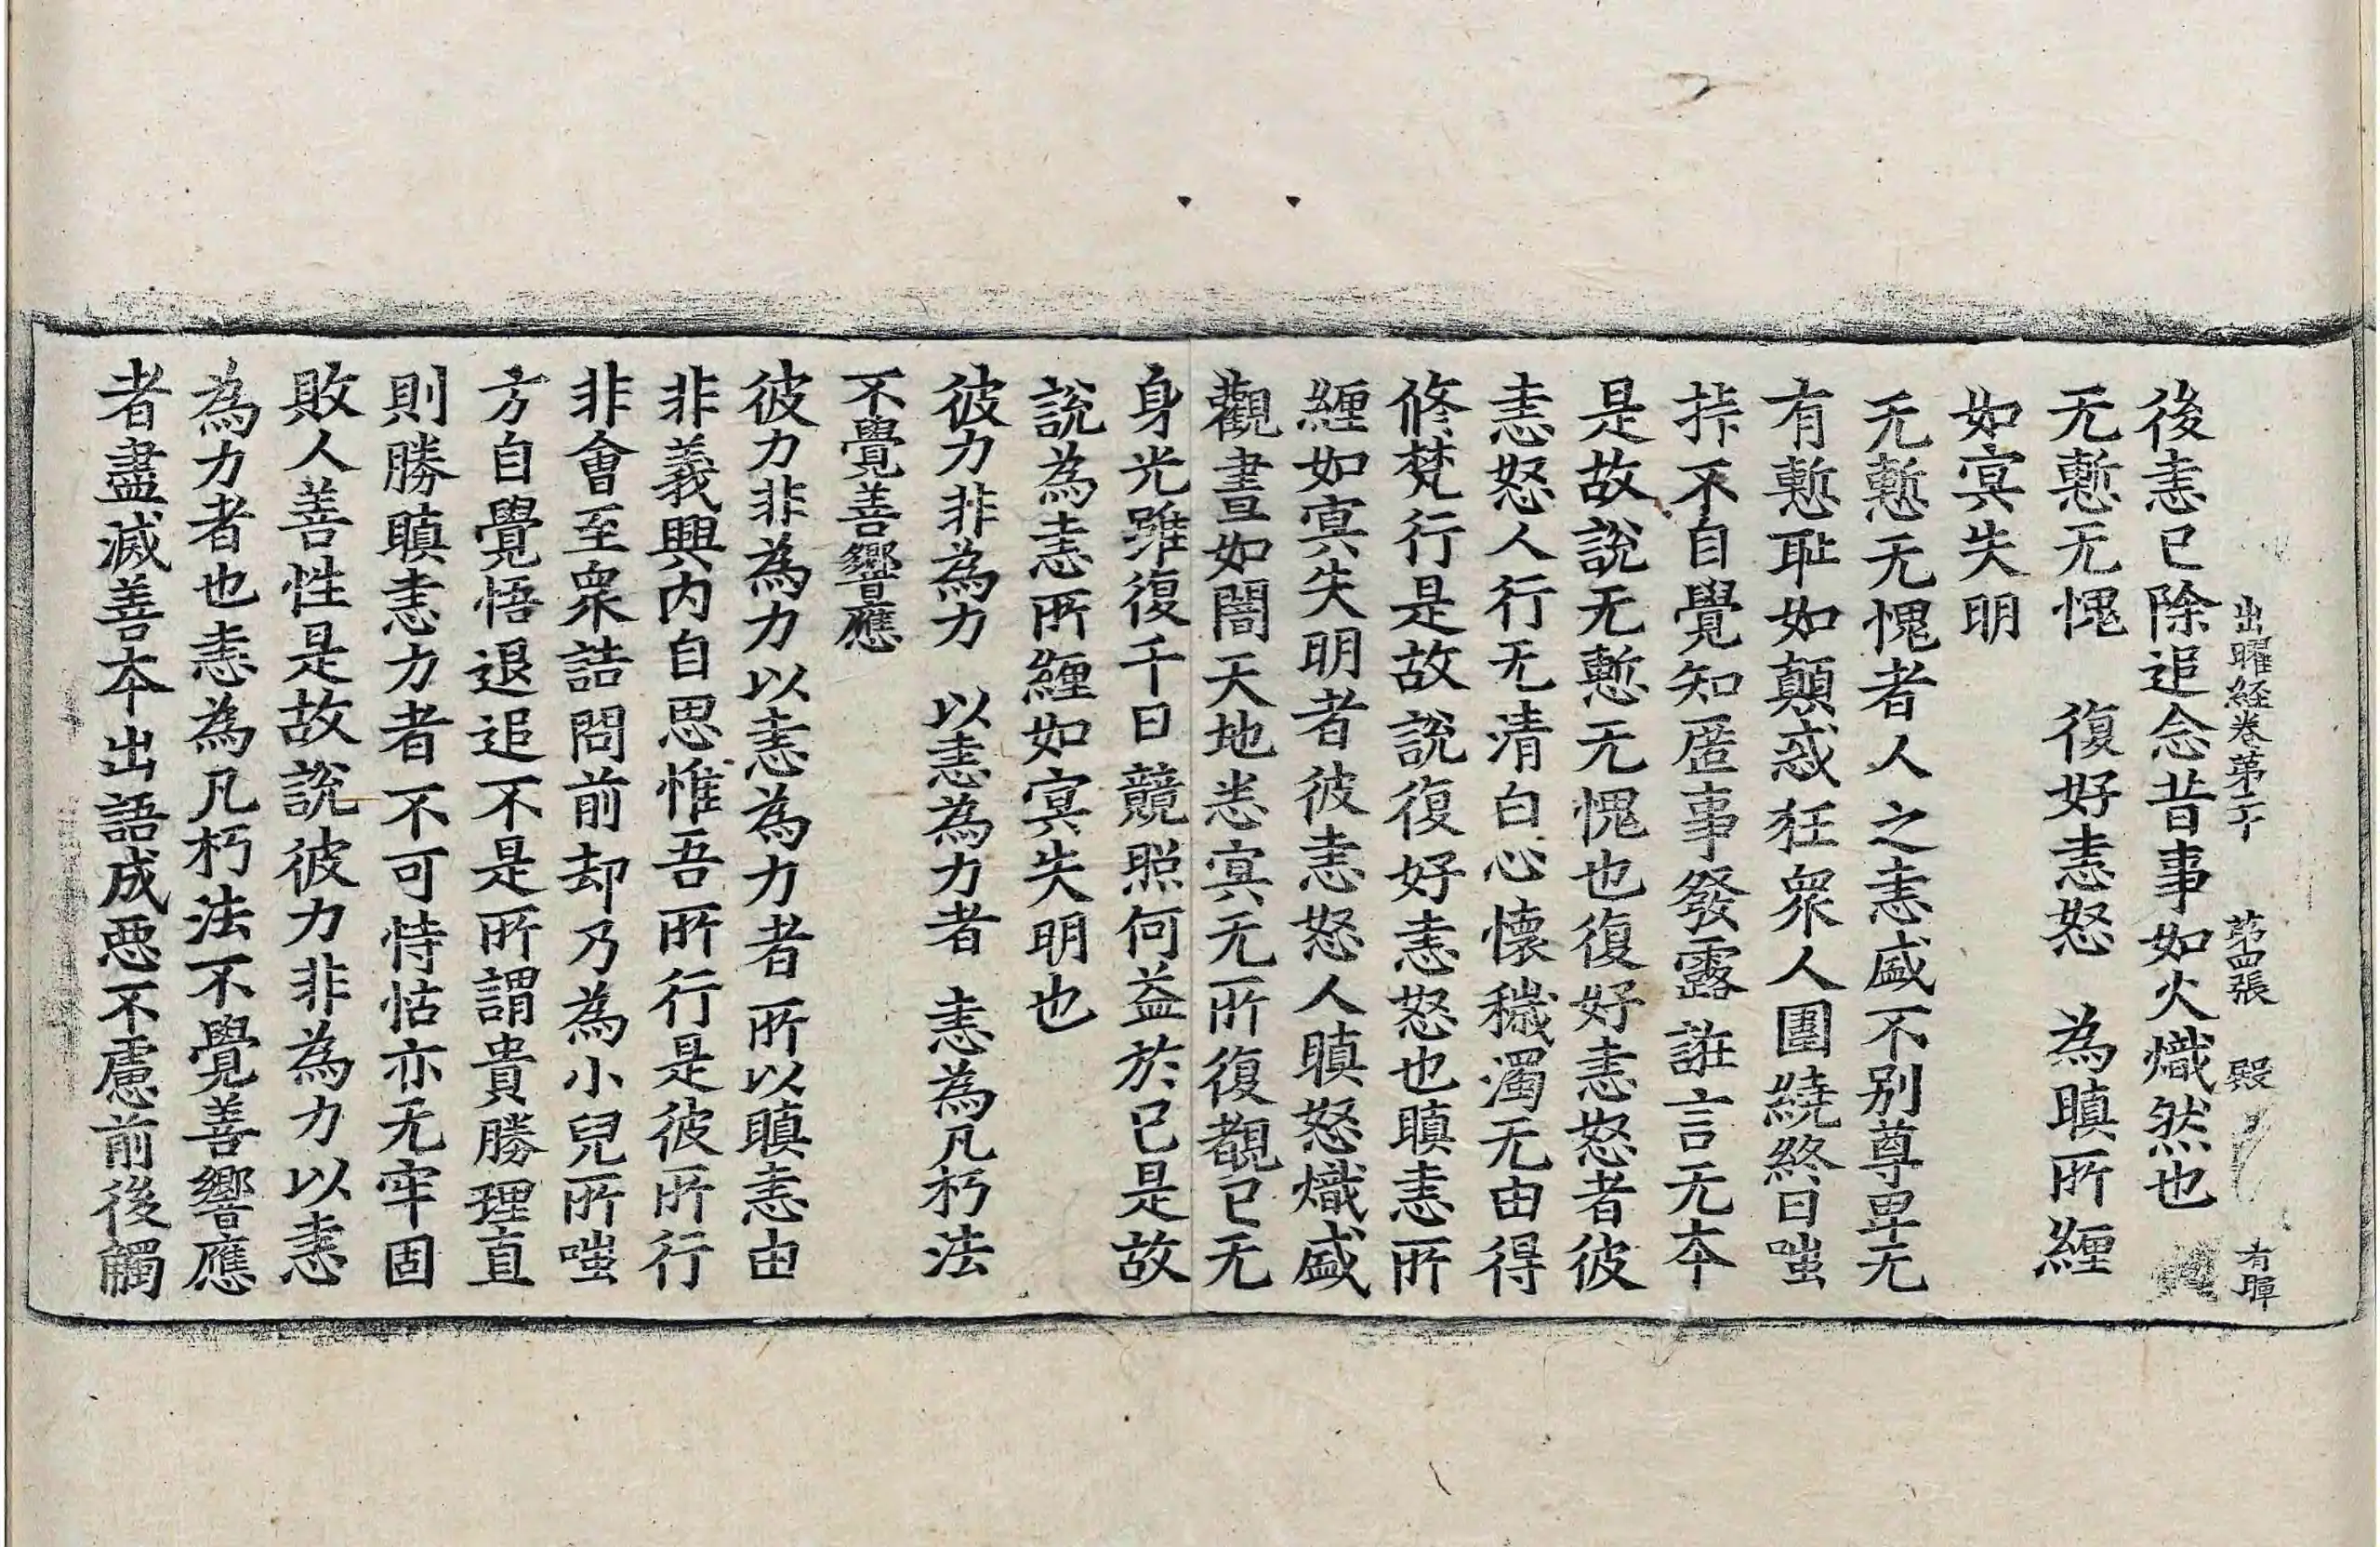 出曜経卷第二十 第四張 殿 有暉
後恚已除追念昔事如火熾然也
无慙无愧 復好恚怒 為瞋所纏
如㝠失明
无慙无愧者人之恚盛不別尊卑无
有慙耻如顛惑狂衆人圍繞終日嗤
㧊不自覺知匿事發露誑言无夲
是故說无慙无愧也復好恚怒者彼
恚怒人行无清白心懷穢濁无由得
修梵行是故說復好恚怒也瞋恚所
纏如㝠失明者彼恚怒人瞋怒熾盛
觀晝如闇天地悉㝠无所復覩已无
身光雖復千日競照何益於已是故
說為恚所纏如㝠失明也
彼力非為力 以恚為力者 恚為凡朽法
不覺善響應
彼力非為力以恚為力者所以瞋恚由
非義興内自思惟吾所行是彼所行
非會至衆詰問前却乃為小兒所嗤
方自覺悟退追不是所謂貴勝理直
則勝瞋恚力者不可恃怙亦无牢固
敗人善性是故說彼力非為力以恚
為力者也恚為凡朽法不覺善響應
者盡滅善夲出語成惡不慮前後觸